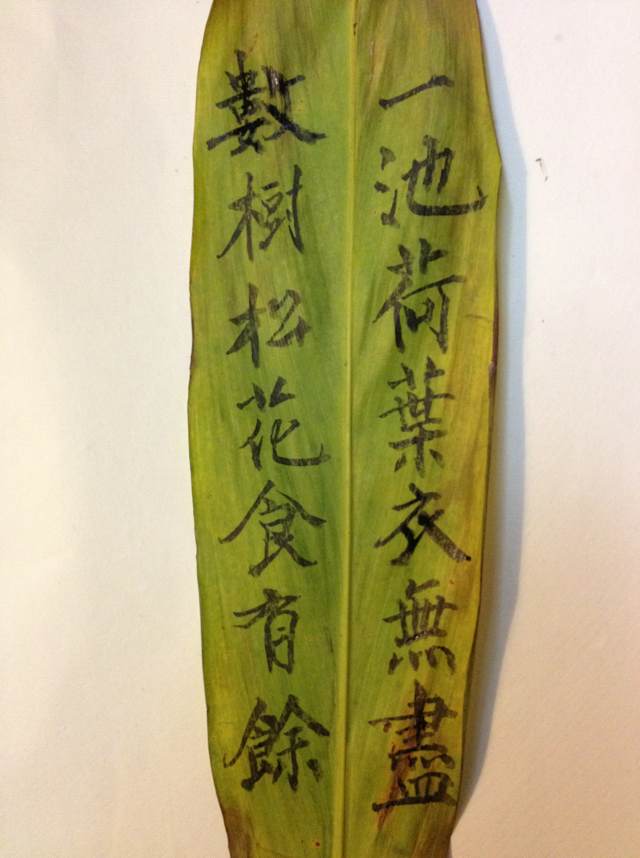 一池荷葉衣無盡
數樹松花食有餘